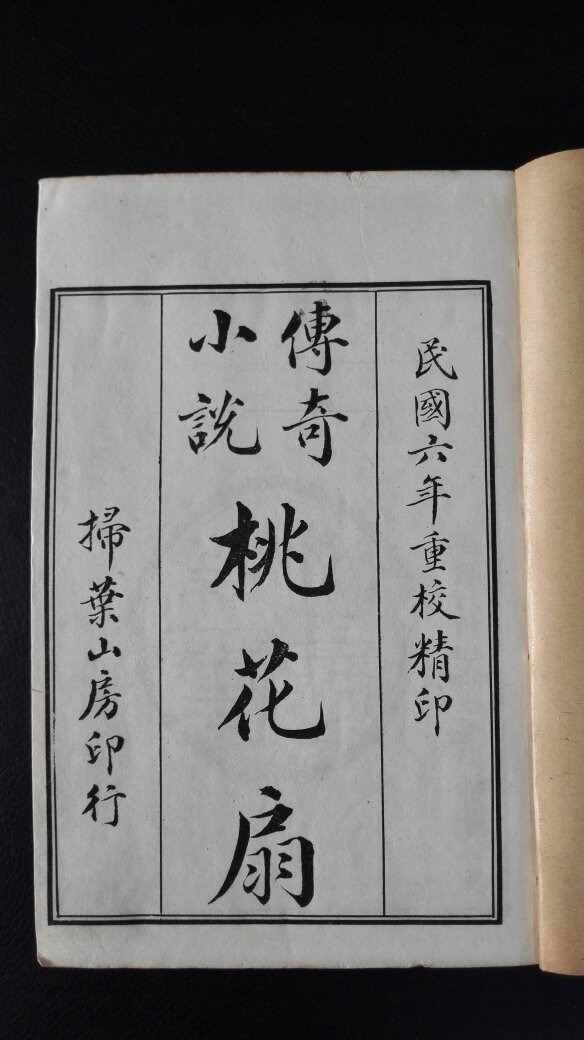 民國六年重校精印
傳奇
小說
桃花扇
掃葉山房印行